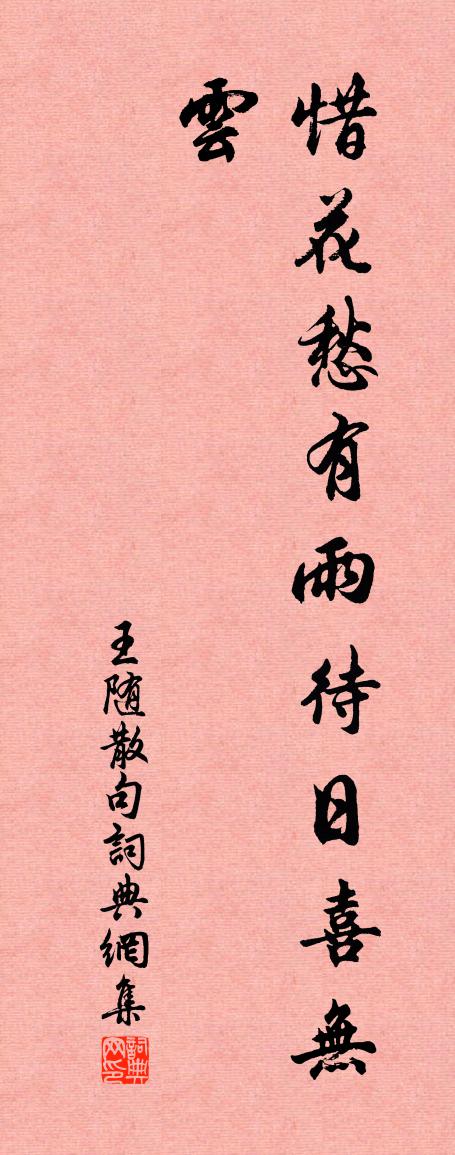 惜花愁有雨待日喜無
雲
王随散句詞典網集
詞典网印